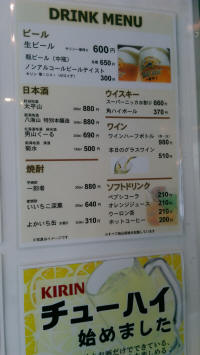 DRINK MENU
ビール
生ビール 600円
瓶ビール (中瓶) 650円
ノンアルコールビールテイスト
300円
日本酒
太平山 880円
八海山 特別本醸造 880円
男山くーる 690円
菊水 500円
焼酎
一刻者 880円
いいちこ深薫 640円
よかいち缶 310円
ウイスキー
スーパーニッカ水割り 660円
角ハイボール 370円
ワイン
ワインハーフボトル 980円
本日のグラスワイン
510円
ソフトドリンク
ペプシコーラ 210円
オレンジジュース 210円
ウーロン茶 210円
ホットコーヒー 200円
KIRIN
チューハイ
始めました